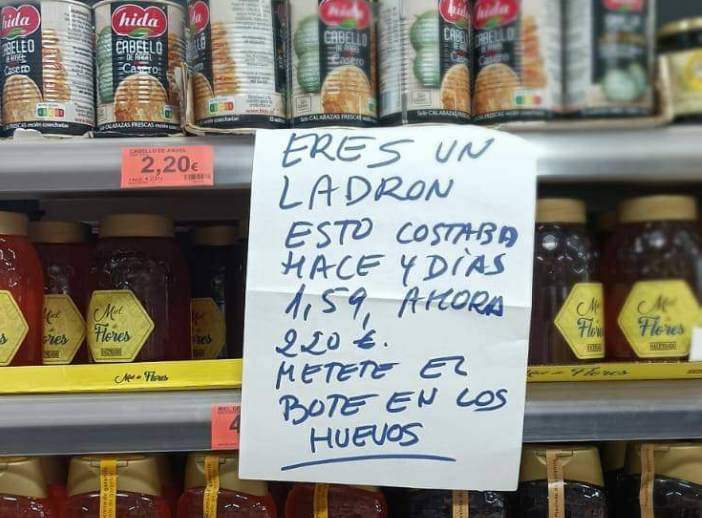 hida
CABELLO
DE ÁNGEL
Casero
hida
CABELLO
DE ÁNGEL
Casero
hida
CABELLO
Casero
hida
hida
CABELLO
DE ÁNGEL
Casero
Solo CALABAZAS FRESCAS recién cosechadas
CABELLO DE ANGEL
2,20€
ERES UN
LADRON
ESTO COSTABA
HACE 4 DÍAS
1,59, AHORA
220 €.
METETE EL
BOTE EN LOS
HUEVOS
Miel de
Flores
Miel de
Flores
Miel de
Flores
Miel de Flores
Miel de Flores
4